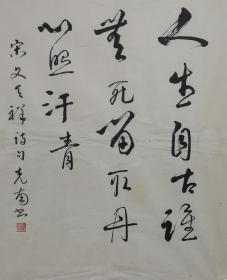 人生自古谁
无死留取丹
心照汗青
宋文天祥诗句克南书